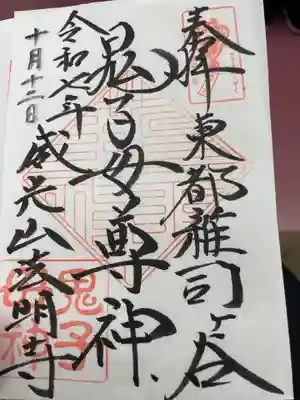 奉拝 東都雜司ヶ谷
鬼子母尊神
令和七年
十月十二日
威光山法明寺
鬼子母神